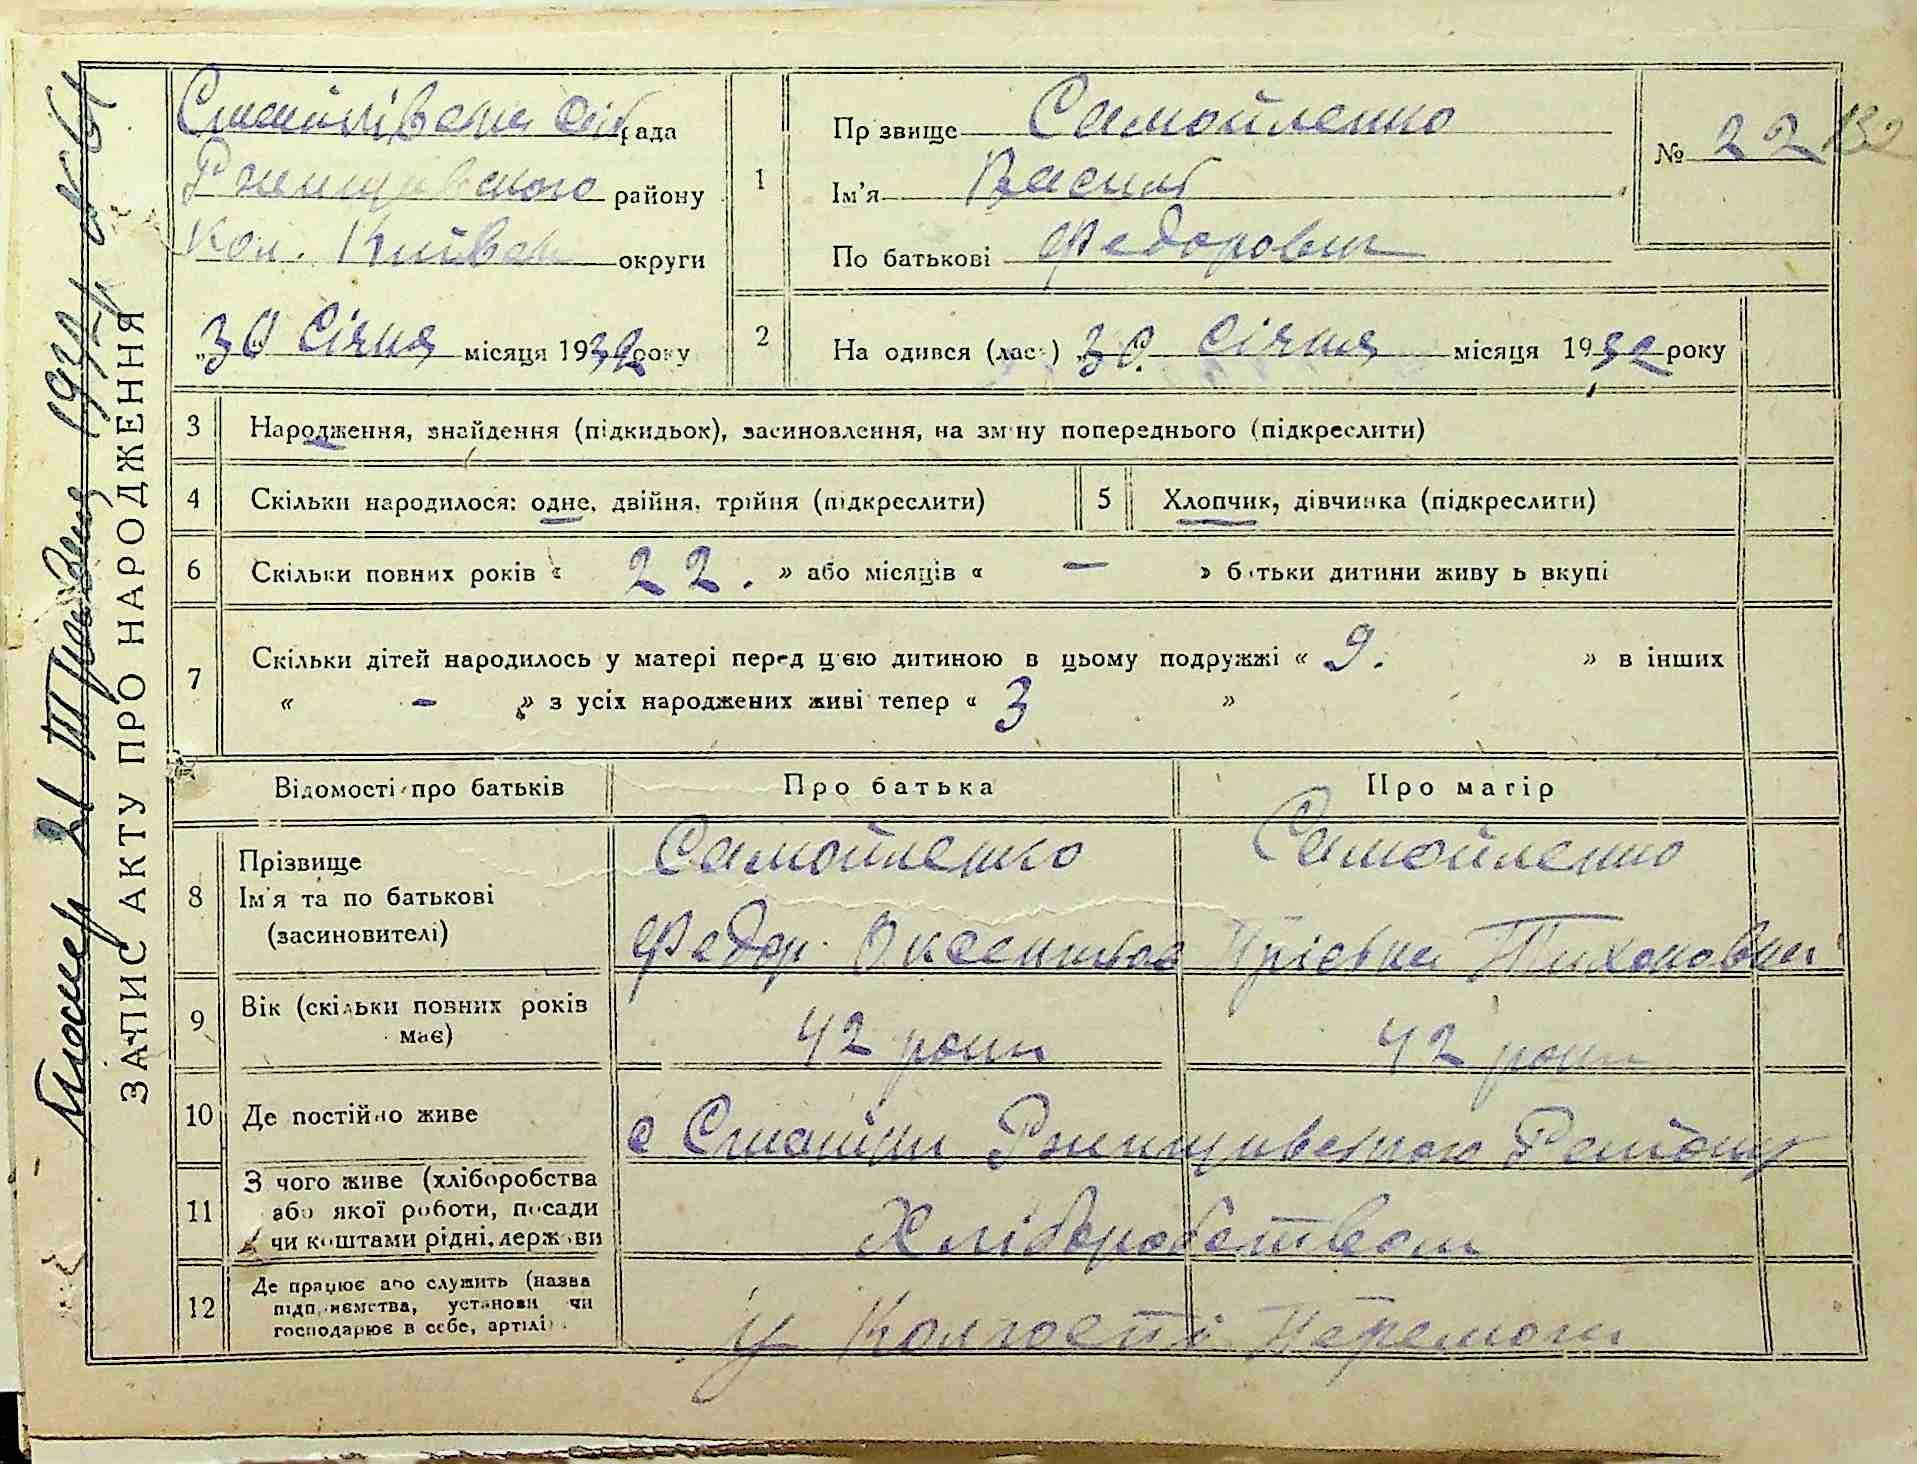 ЗАПИС АКТУ ПРО НАРОДЖЕННЯ
рада
Ржищівського району
Кол. Київськ округи
„30" Січня місяця 1932 року
1
Прізвище Самойленко
Ім'я Василь
По батькові Федорович
№ 22
132
2
На одився (лась) 30. Січня місяця 1932 року
3 Народження, знайдення (підкидьок), засиновлення, на зміну попереднього (підкреслити)
4 Скільки народилося: одне, двійня, трійня (підкреслити)
5 Хлопчик, дівчинка (підкреслити)
6 Скільки повних років « 22. » або місяців « — » батьки дитини живуть вкупі
7 Скільки дітей народилось у матері перед цією дитиною в цьому подружжі « 9. » в інших
« – » з усіх народжених живі тепер « 3 »
Відомості про батьків Про батька Про матір
8 Прізвище
Ім'я та по батькові
(засиновителі)
Самойленко Самойленко
Федор Оксентьев Пріська Тихоновна
9 Вік (скільки повних років
має)
42 роки 42 роки
10 Де постійно живе
с Стайки Ржищівського Району
11 З чого живе (хліборобства
або якої роботи, посади
чи коштами рідні, держави
Хліборобством
12 Де працює або служить (назва
підприємства, установи чи
господарює в себе, артілі)
у Колгоспі Перемоги